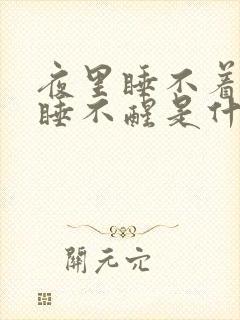 夜里睡不着
睡不醒是什
開元穴